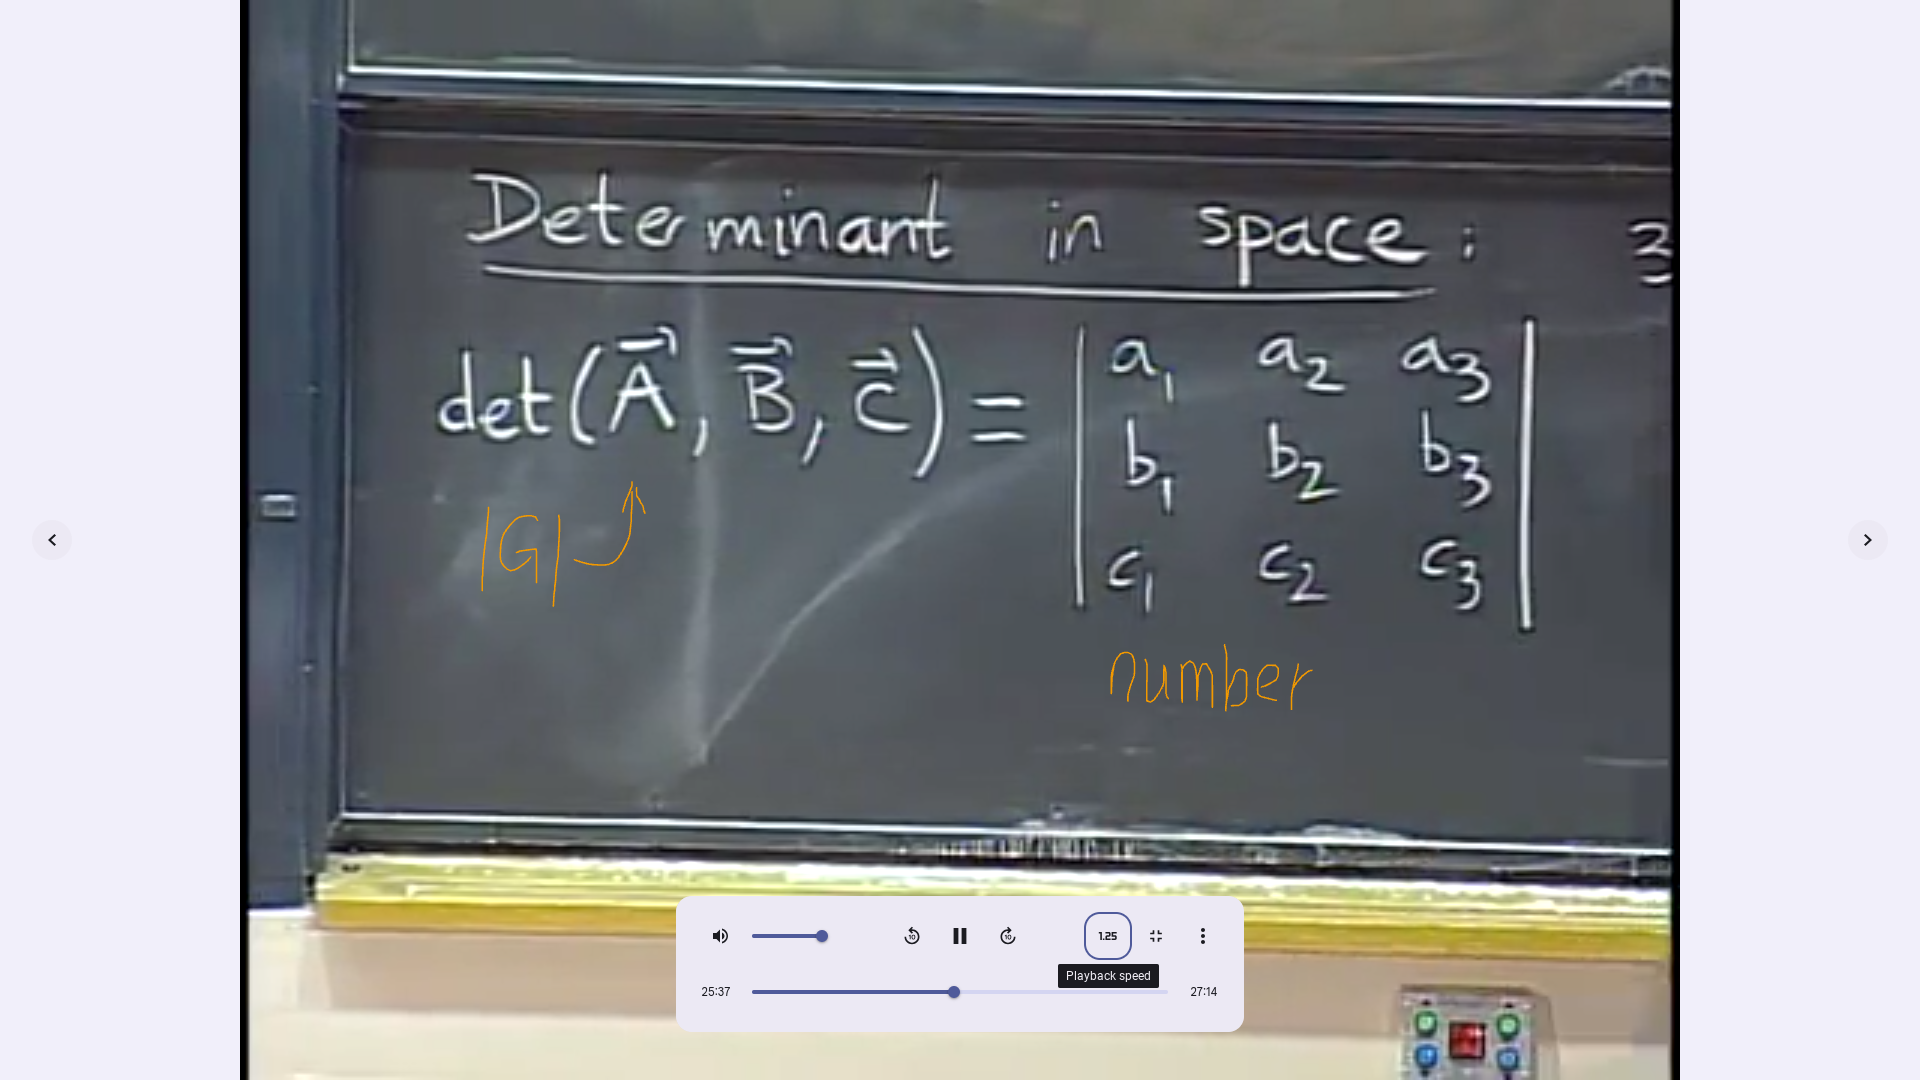 Determinant in space : 3
det(A⃗, B⃗, C⃗) = | a₁ a₂ a₃ |
| b₁ b₂ b₃ |
| c₁ c₂ c₃ |
|G|
number
1.25
Playback speed
25:37 27:14